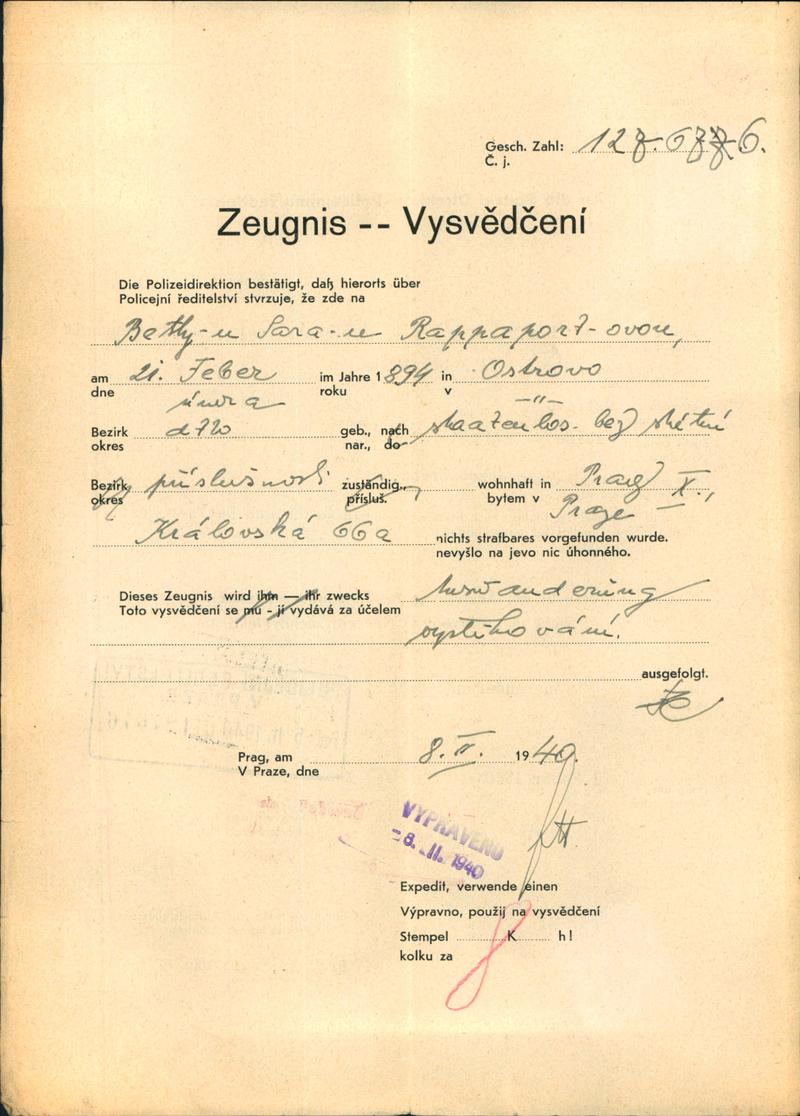 Gesch. Zahl: 127.6776.
Č. j.
Zeugnis -- Vysvědčení
Die Polizeidirektion bestätigt, daß hierorts über
Policejní ředitelství stvrzuje, že zde na
Betty-u Sara-u Rappaport-ovou,
am 21. Feber im Jahre 1894 in Ostrovo
dne února roku v -"-
Bezirk dtto geb., nach staatenlos- bez státní
okres nar., do
Bezirk příslušnosti zuständig., wohnhaft in Prag X.,
okres přísluš. bytem v Praze
Královská 66a nichts strafbares vorgefunden wurde.
nevyšlo na jevo nic úhonného.
Dieses Zeugnis wird ihm — ihr zwecks Auswanderung
Toto vysvědčení se mu - jí vydává za účelem
vystěhování.
ausgefolgt.
Prag, am 8. II. 1940.
V Praze, dne
VYPRAVENO
-8. II. 1940
Expedit, verwende einen
Výpravno, použij na vysvědčení
Stempel K h!
kolku za